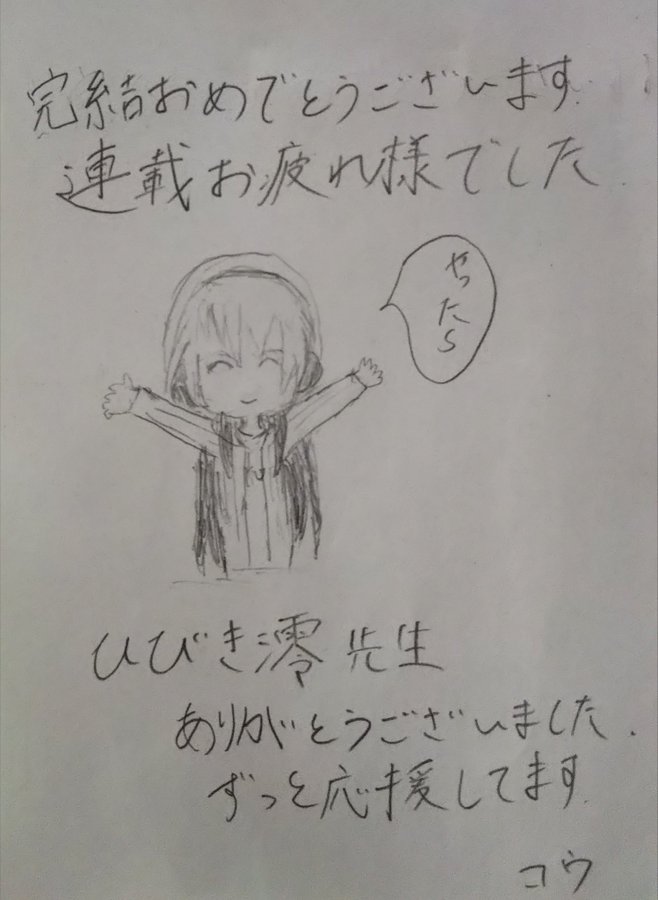 完結おめでとうございます
連載お疲れ様でした
やったら
ひびき澪先生
ありがとうございました.
ずっと応援してます
コウ